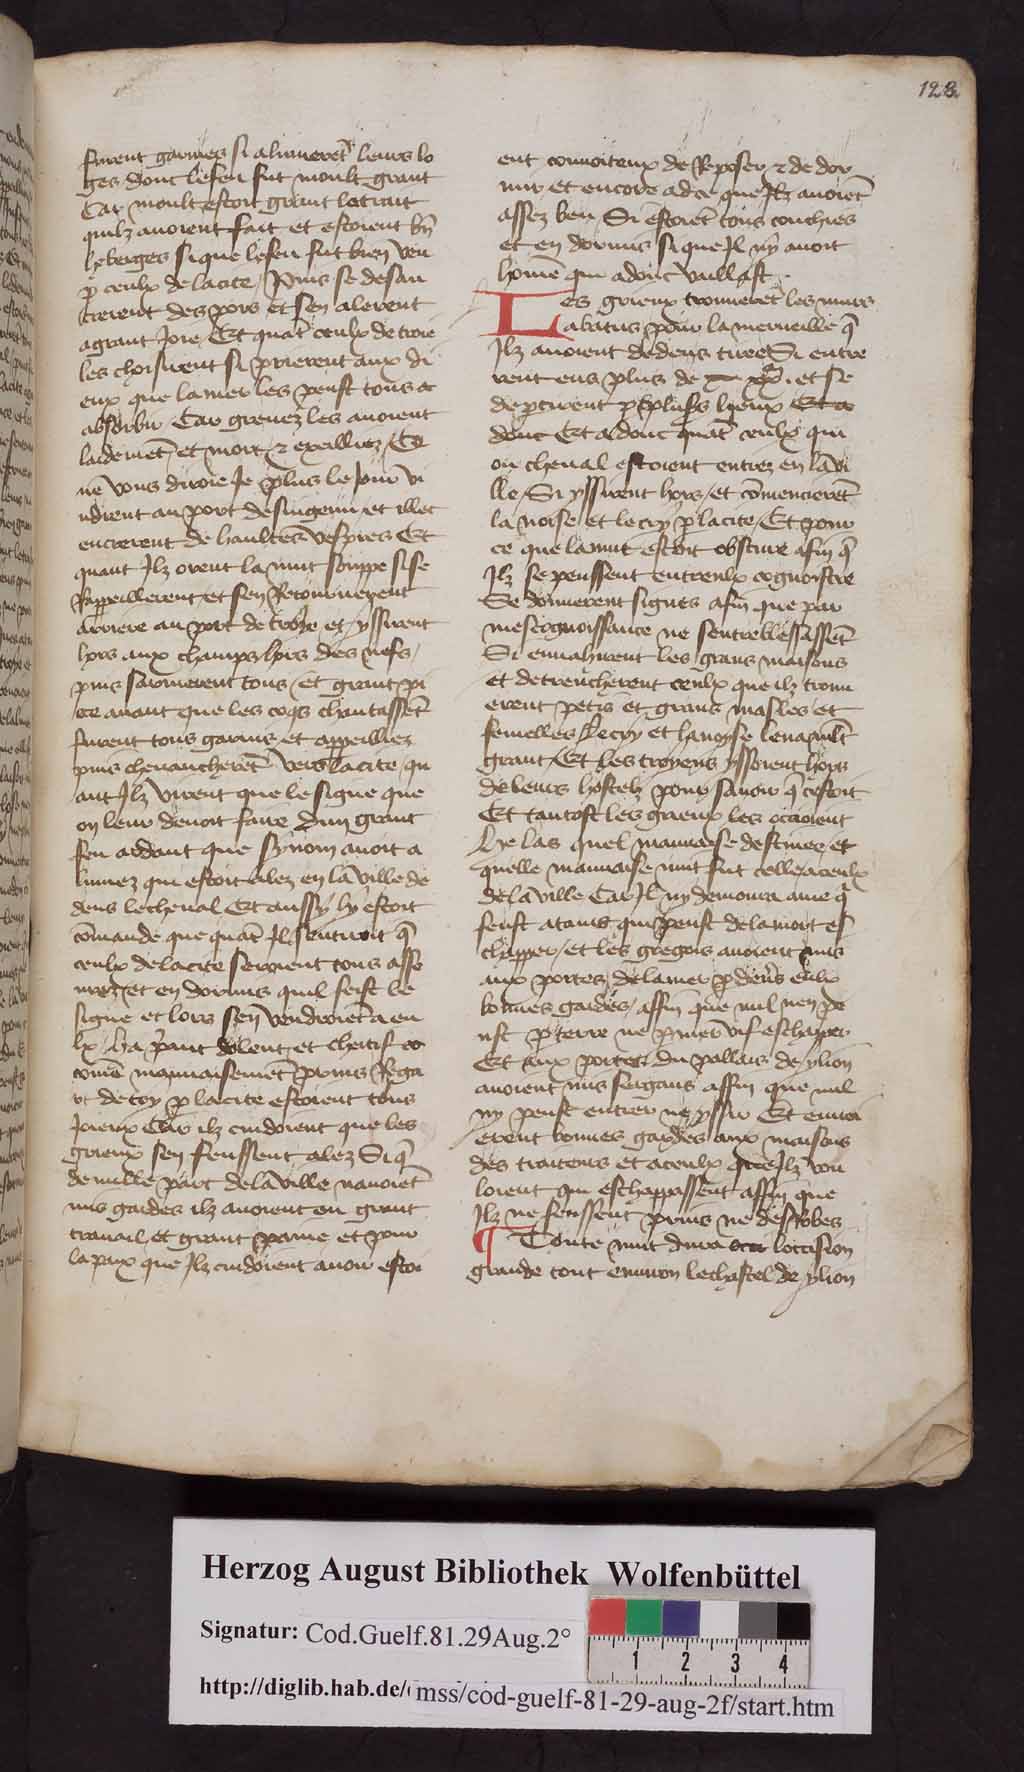 128
furent garnies si alumeret leurs lo
ges dont le feu fut moult grant
Car moult estoit grant le trait
quilz auoient fait et estoient bn
heberges si que le feu fut bien veu
p ceulx de la cite / Puis se desan
crerent des pors et sen alerent
a grant Joie Et quat ceulx de troie
les choisirent si prierent aux di
eux que la mer les peust tous
absorbir Car greuez les auoient
laidemet et mort z exilliez / Et
ne vous diroie Je plus le Jour vi
ndrent au port de singeun et illec
encrerent de haultes vespres Et
quant Ilz orent la nuit souppe si se
Rappeillerent et sen Retournerent
arriere au port de troye et yssirent
hors aux champs hors des nefs /
puis sarmerent tous / et grant pi
ece auant que les coqs chantassent
furent tous garnis et appeilliez
puis cheuaucheret vers la cite qu
ant Ilz virent que le signe que
on leur deuoit faire dun grant
feu ardant que synom auoit a
lumez qui estoit alez en la ville de
dens le cheual Et aussy ly estoit
comande que quat Il sentiroit q
ceulx de la cite seroient tous asse
urez et en dormis quil feist le
signe et lors sen vendroiet a eu
lx / Ha priant dolent et chetif
come mauuaisemet prins Rega
rt de toy p la cite estoient tous
Joieux Car ilz cuidoient que les
grieux sen feussent alez Si q
de nulle part de la ville nauoiet
mis gardes ilz auoient eu grant
trauail et grant paine et pour
la paix que Ilz cuidoient auoir estoi
ent conuoiteux de Reposer z de dor
mir et encore ad ce que Ilz auoiet
assez beu Si estoiet tous couchies
et en dormis si que Il ny auoit
home qui adonc vaillast .
Les grieux trouueret les murs
abatus pour la merueille q
Ilz auoient dedens tiree Si entre
rent ens plus de et se
deptirent p plus's lieux
donc Et adonc quat ceulx qui
ou cheual estoient entrez en la vi
lle / Si yssirent hors / et comenceret
la noise et le cry p la cite / Et pour
ce que la nuit estoit obscure afin q
Ilz se peussent entreulx cognoistre
Se donnerent signes afin que par
mescognoissance ne sentreblessissent
Si enuahirent les grans maisons
et detrencherent ceulx que ilz trouu
erent petis et grans masles et
femelles Le cry et la noyse leua mlt
grant / Et les troyens yssoient hors
de leurs hostelz pour sauoir q cestoit
Et tantost les grieux les occioient
He las quel mauuaise destinee et
quelle mauuaise nuit fut celle a ceulx
de la ville Car Il ny demoura ame q
feust atains qui peust de la mort es
chapper / et les gregois auoient mis
aux portes de la mer p deuers eulx
bonnes gardes / affin que nul nen pe
ust p terre ne p mer vif eschapper
Et aux portes du pallais de ylion
auoient mis sergans affin que nul
ny peust entrer ne yssir Et enuoi
erent bonnes gardes aux maisons
des traiteurs et a ceulx que Ilz vou
loient qui eschappassent affin que
Ilz ne feussent prins ne desrobes
Toute nuit dura loccision
grande tout enuiron le chastel de ylion
Herzog August Bibliothek Wolfenbüttel
Signatur: Cod.Guelf.81.29Aug.2°
1 2 3 4
http://diglib.hab.de/ mss/cod-guelf-81-29-aug-2f/start.htm